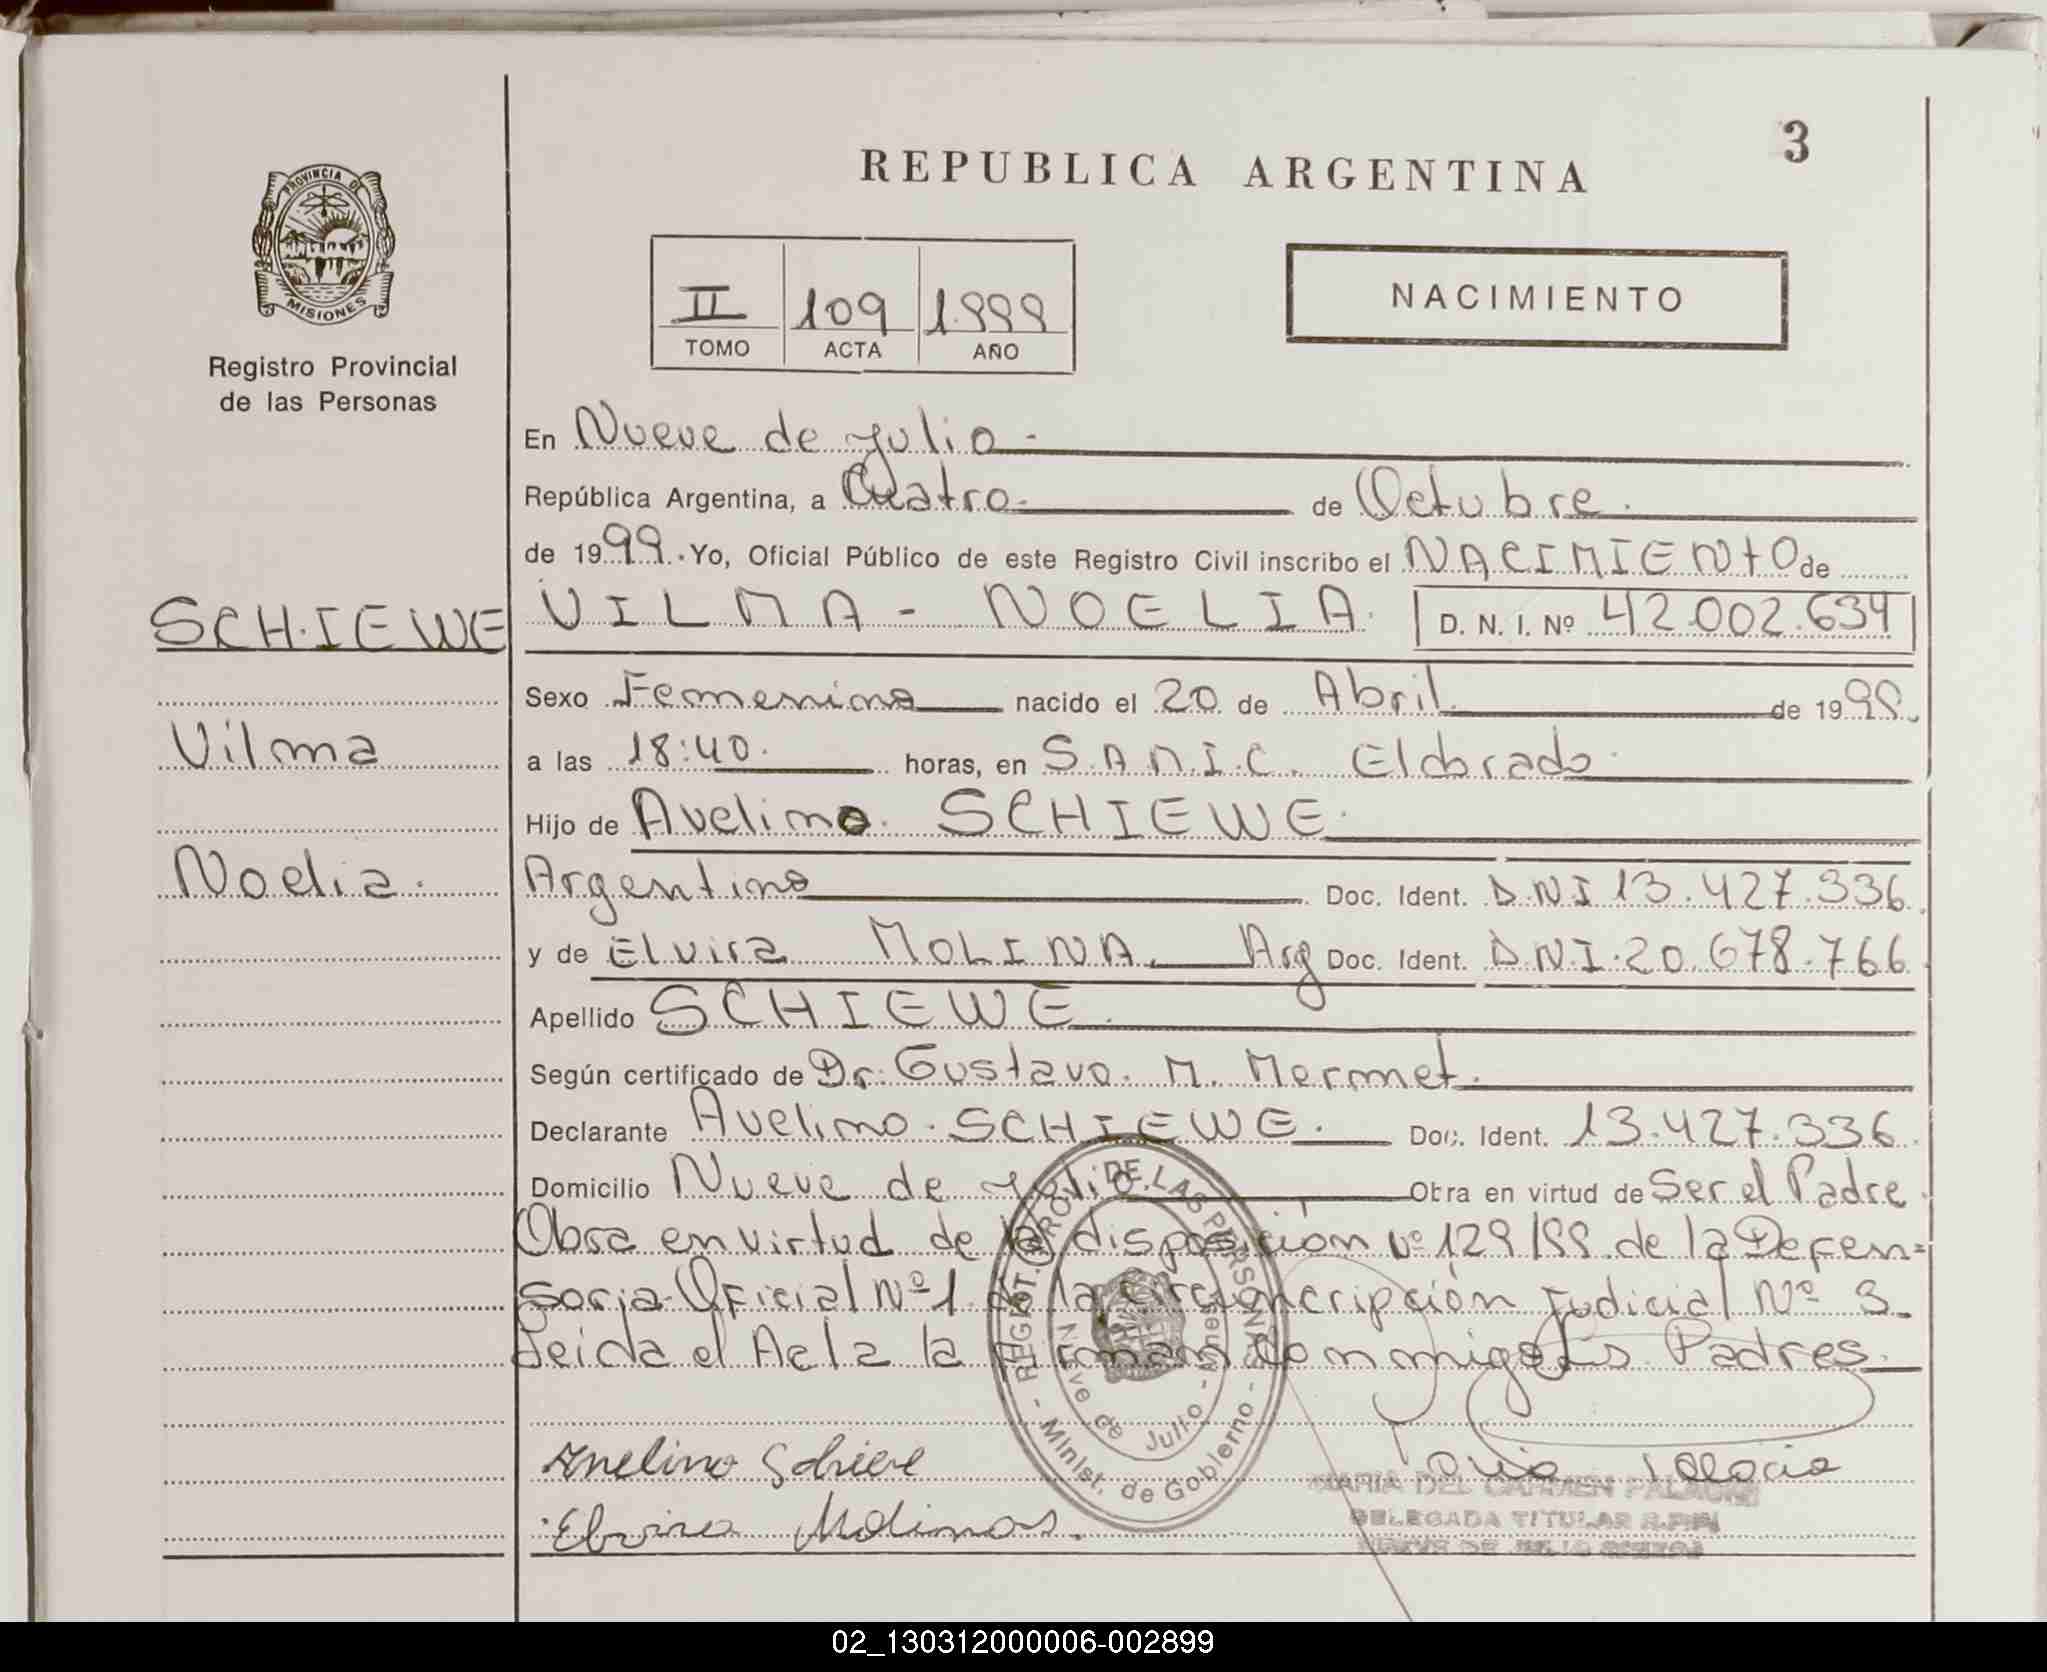 3
REPUBLICA ARGENTINA
PROVINCIA DE
MISIONES
Registro Provincial
de las Personas
II 109 1.999
TOMO ACTA AÑO
NACIMIENTO
En Nueve de Julio.
República Argentina, a Cuatro. de Octubre.
de 1999. Yo, Oficial Público de este Registro Civil inscribo el NACIMIENTO de
SCHIEWE VILMA - NOELIA. D. N. I. Nº 42.002.634
Sexo Femenino nacido el 20 de Abril de 1999.
Vilma a las 18:40. horas, en S.A.M.I.C. Eldorado.
Hijo de Avelino. SCHIEWE.
Noelia. Argentino Doc. Ident. D.N.I 13.427.336.
y de Elvira MOLINA. Arg Doc. Ident. D.N.I.20.678.766
Apellido SCHIEWE.
Según certificado de Dr. Gustavo. M. Mermet.
Declarante Avelino. SCHIEWE. Doc. Ident. 13.427.336.
Domicilio Nueve de Julio Obra en virtud de Ser el Padre.
Obra en virtud de la disposición Nº 129/99 de la Defen=
soria Oficial Nº 1 de la circuncripción Judicial Nº 3.
Leida el Acta la Firman conmigo Los Padres.
REGIST. PROV. DE LAS PERSONAS
Nueve de Julio - Mnes
- Minist. de Gobierno -
Avelino Schieve
Elvira Molinas.
MARIA DEL CARMEN PALACIO
DELEGADA TITULAR R.P.P.
NUEVE DE JULIO
02_130312000006-002899